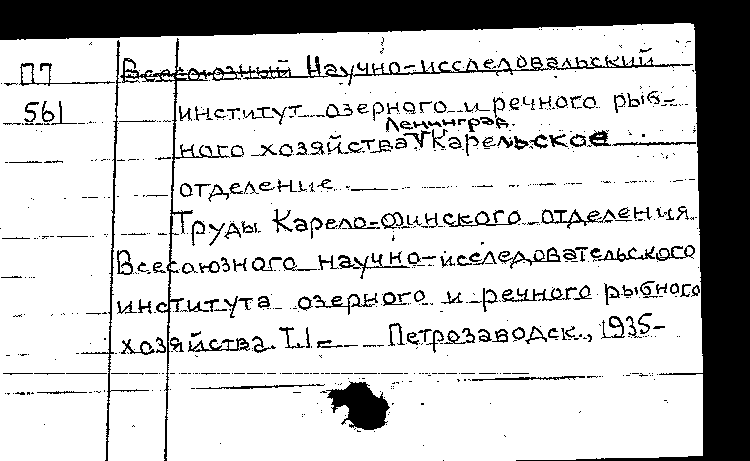 П7 Всесоюзный Научно-исследовальский
561 институт озерного и речного рыб-
Ленинград.
ного хозяйства Карельское
отделение
Труды Карело-финского отделения
Всесоюзного научно-исследовательского
института озерного и речного рыбного
хозяйства. Т.1- Петрозаводск., 1935-